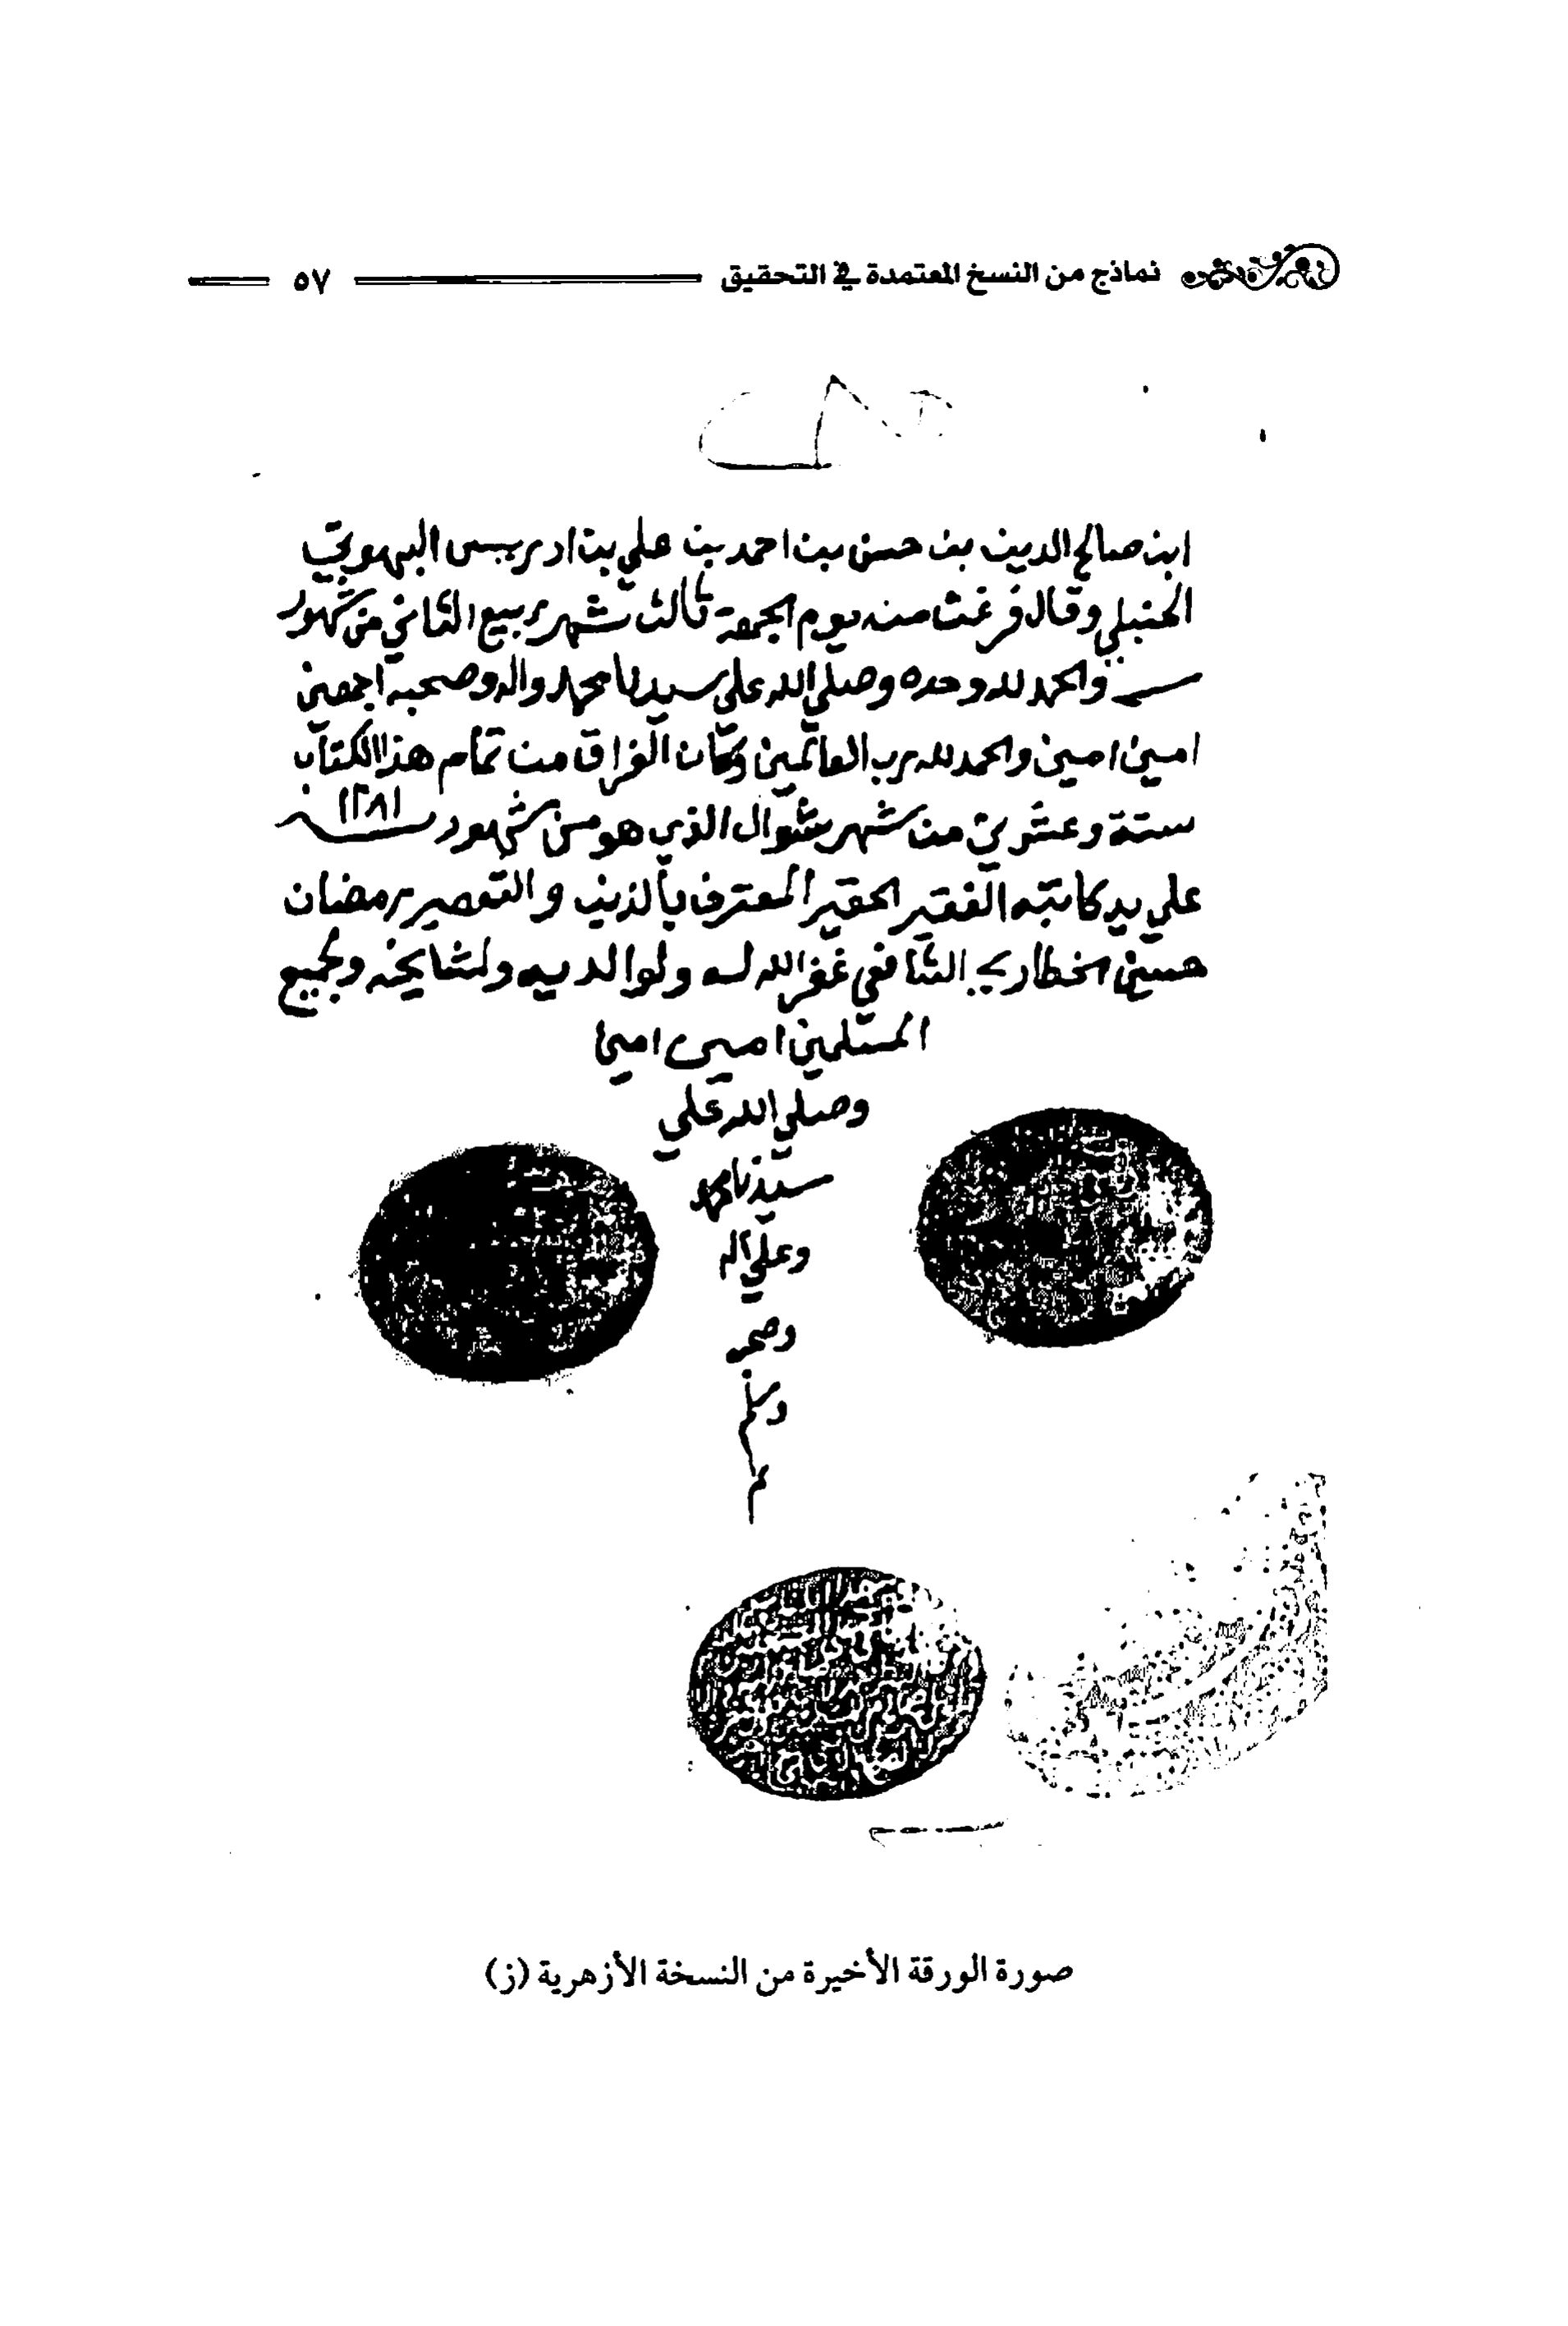 نماذج من النسخ المعتمدة في التحقيق ٥٧
ابن صالح الدين بن حسن بن احمد بن علي بن ادريس البهوتي
الحنبلي وقال فرغت منه يوم الجمعة ثالث شهر ربيع الثاني من شهور
سنة والحمد لله وحده وصلي الله علي سيدنا محمد واله وصحبه اجمعين
امين امين والحمد لله رب العالمين وكان الفراق من تمام هذا الكتاب
ستة وعشرين من شهر شوال الذي هو من شهور سنة ١٢٨١
علي يد كاتبه الفقير الحقير المعترف بالذنب والتقصير رمضان
حسين الشافعي غفر الله له ولوالديه ولمشايخه ولجميع
المسلمين امين امين
وصلي الله علي
سيدنا محمد
وعلي اله
وصحبه
وسلم
م
صورة الورقة الأخيرة من النسخة الأزهرية (ز)